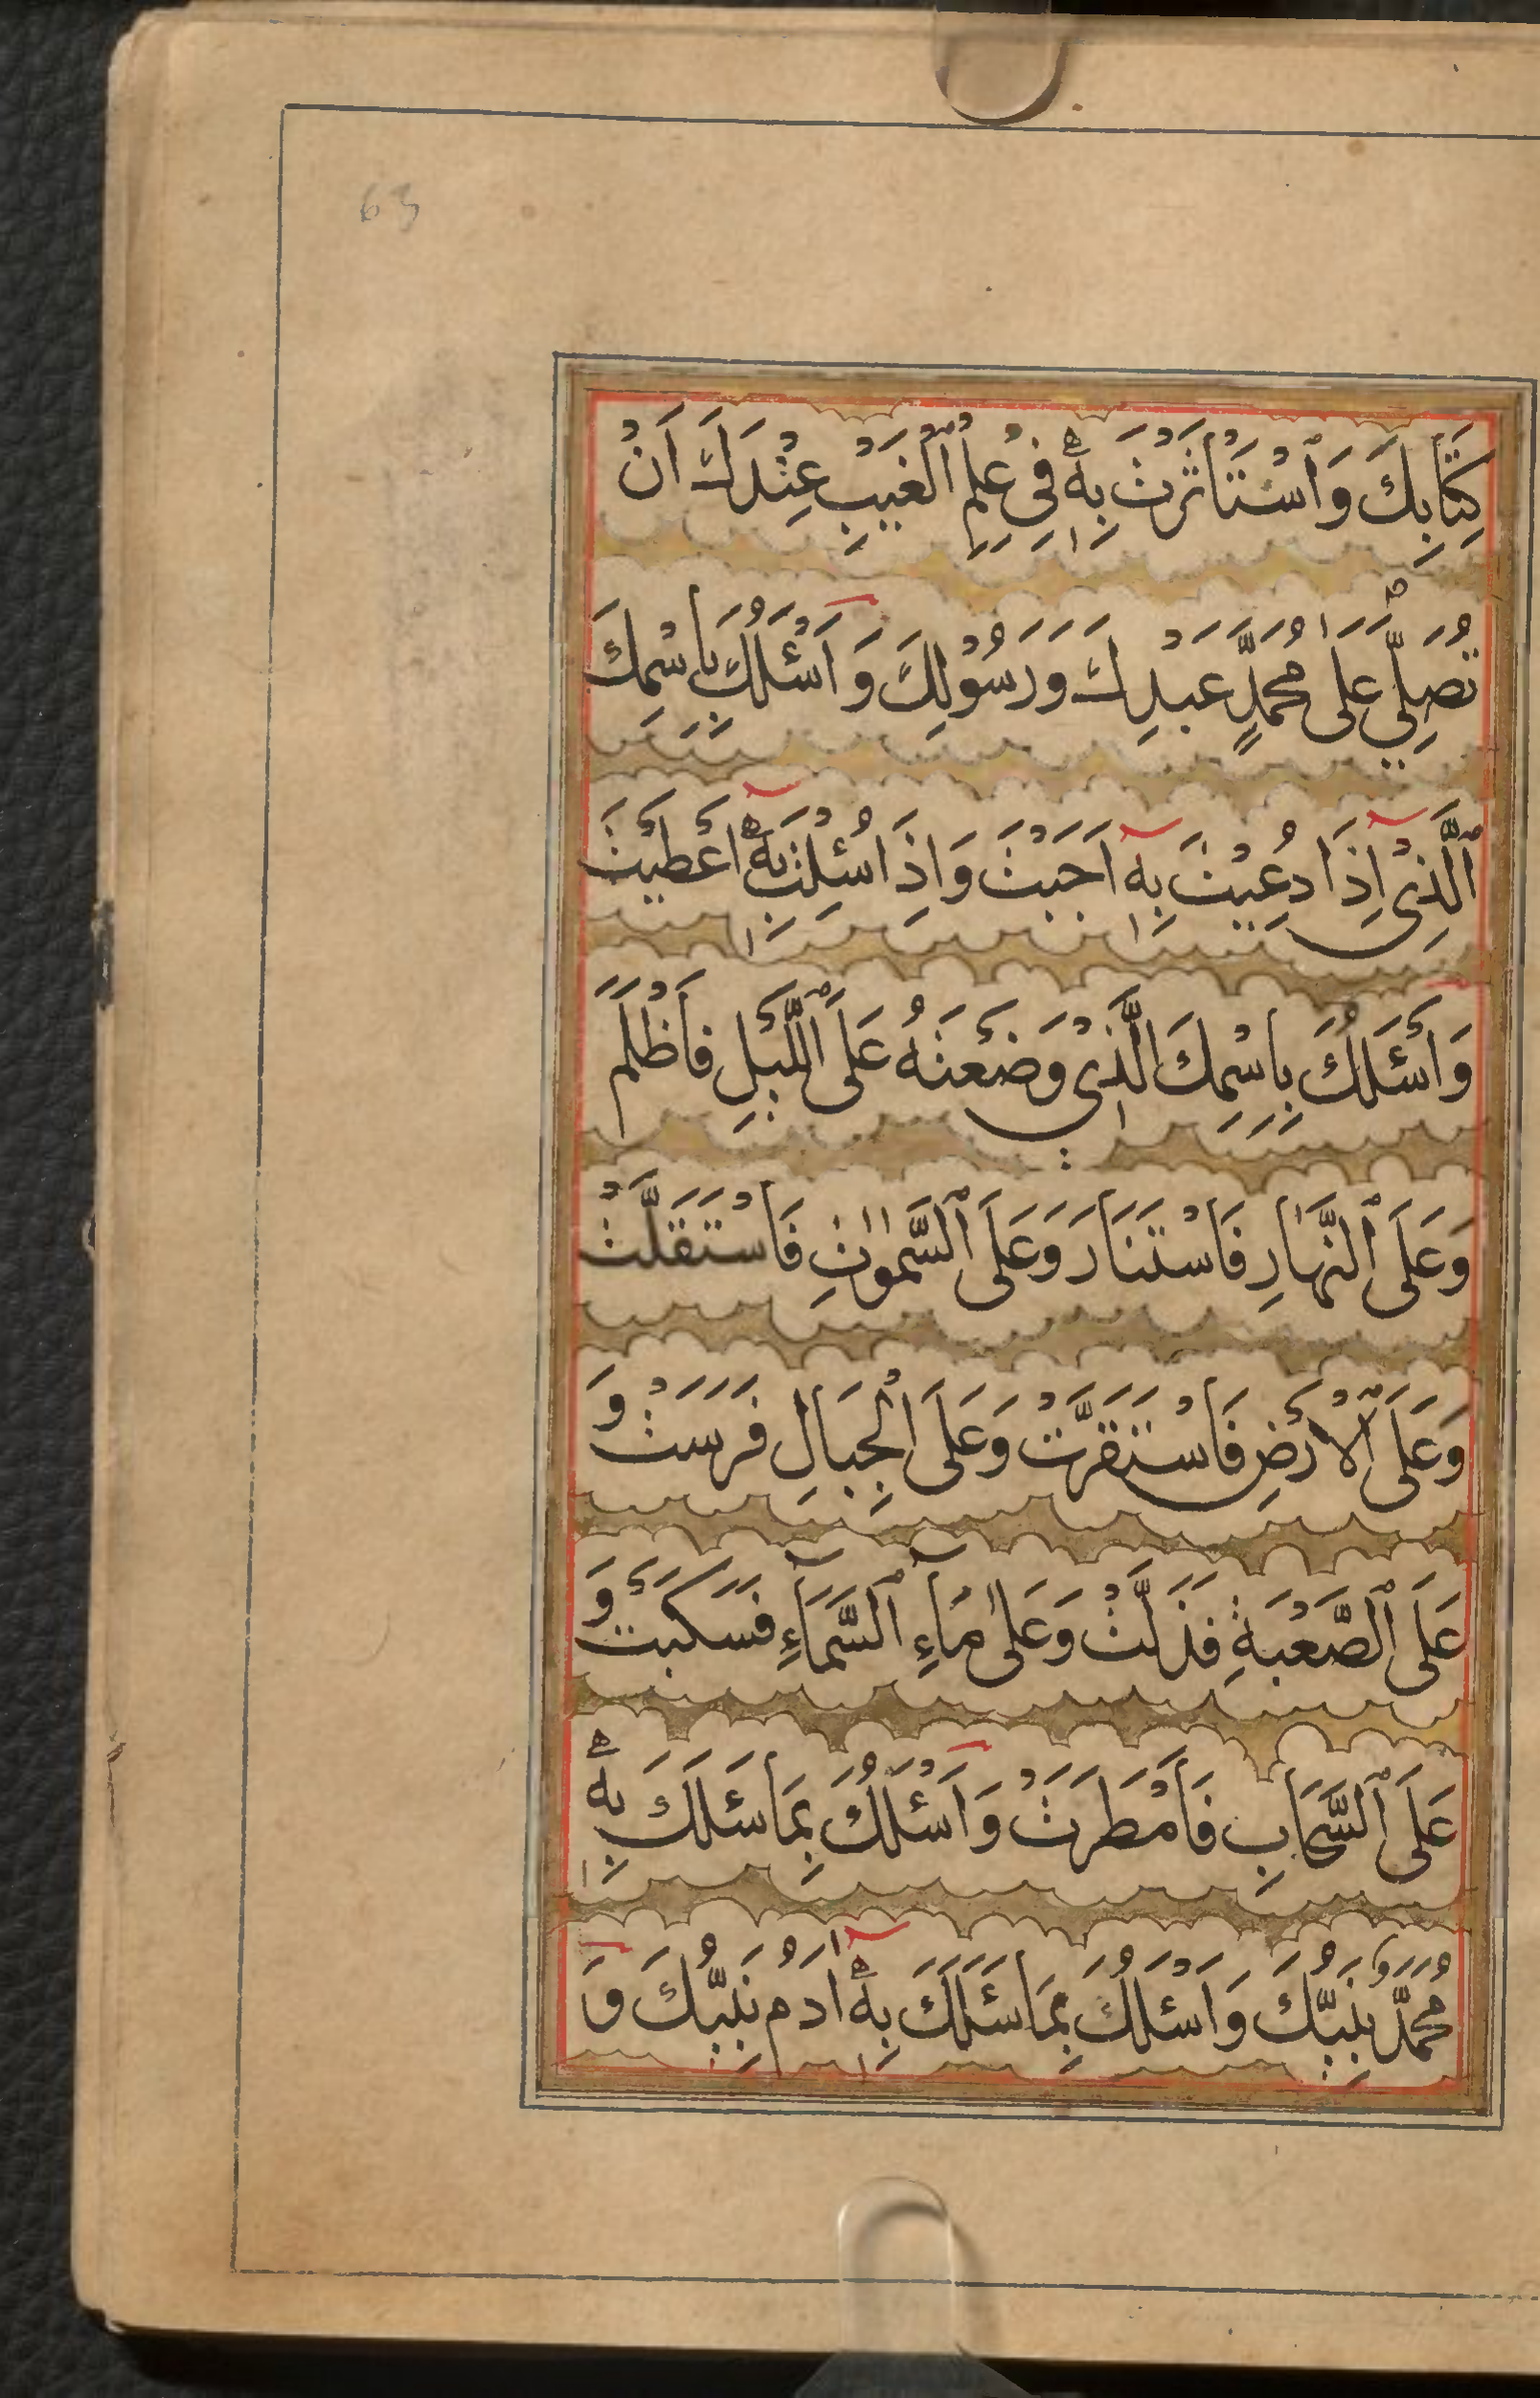 63
كِتَابِكَ وَٱسْتَأْثَرْتَ بِهٖ فِي عِلْمِ ٱلْغَيْبِ عِنْدَكَ اَنْ
تُصَلِّيَ عَلٰى مُحَمَّدٍ عَبْدِكَ وَرَسُوْلِكَ وَ اَسْئَلُكَ بِاسْمِكَ
ٱلَّذِيْ اِذَا دُعِيْتَ بِهٖ اَجَبْتَ وَاِذَا سُئِلْتَ بِهٖ اَعْطَيْتَ
وَاَسْئَلُكَ بِاسْمِكَ الَّذِيْ وَضَعْتَهُ عَلَى ٱللَّيْلِ فَاَظْلَمَ
وَعَلَى ٱلنَّهَارِ فَاسْتَنَارَ وَعَلَى ٱلسَّمٰوٰتِ فَاسْتَقَلَّتْ
وَعَلَى ٱلْاَرْضِ فَاسْتَقَرَّتْ وَعَلَى الْجِبَالِ فَرَسَتْ وَ
عَلَى ٱلصَّعْبَةِ فَذَلَّتْ وَعَلٰى مَآءِ ٱلسَّمَآءِ فَسَكَبَتْ وَ
عَلَى ٱلسَّحَابِ فَاَمْطَرَتْ وَاَسْئَلُكَ بِمَا سَئَلَكَ بِهٖ
مُحَمَّدٌ نَبِيُّكَ وَاَسْئَلُكَ بِمَا سَئَلَكَ بِهٖ اٰدَمُ نَبِيُّكَ وَ